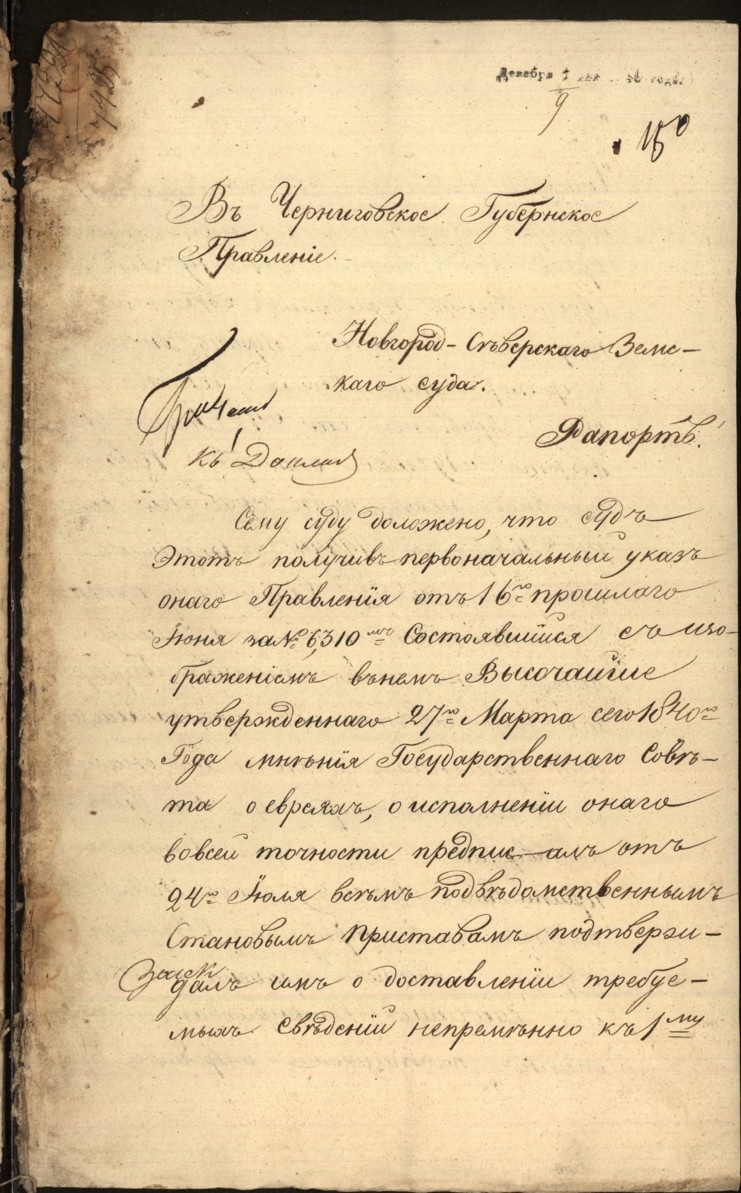 Декабря 1 дня 40 года.
9
150
Въ Черниговское Губернское
Правленіе.
Новгород-Сѣверскаго Земс-
каго суда.
Рапортъ.
къ
Сему суду доложено, что судъ
этотъ получивъ первоначальный указъ
онаго Правленія отъ 16го прошлаго
Іюня за № 6,310мъ Состоявшійся съ изо-
браженіемъ в немъ Высочайше
утвержденнаго 27го Марта сего 1840го
Года мнѣнія Государственнаго Совѣ-
та о евреяхъ, о исполненіи онаго
во всей точности предписалъ отъ
24го Іюля всѣмъ подвѣдомственнымъ
Становымъ Приставамъ подтверж-
далъ имъ о доставленіи требуе-
мыхъ свѣденій непремѣнно къ 1му